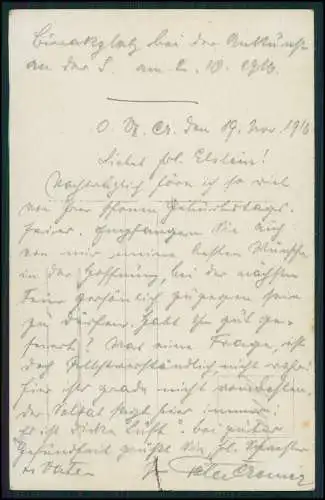 Biwakplatz bei der Ankunft
an der S. am 2. 10. 1916.
O. den 19. Nov. 1916
Liebes Frl. Elstein!
Nachträglich höre ich so viel
von Ihrer schönen Geburtstags-
feier. Empfangen Sie auch
von mir meine besten Wünsche
in der Hoffnung, bei der nächsten
Feier persönlich zugegen sein
zu dürfen. Habt Ihr gut ge-
feiert? Was eine Frage, ist
doch selbstverständlich, nicht
hier ists grade nicht
der Soldat sagt hier immer:
Es ist dicke Luft". bei guter
Gesundheit grüßt Sie, Frl. Schwester
u. Vater